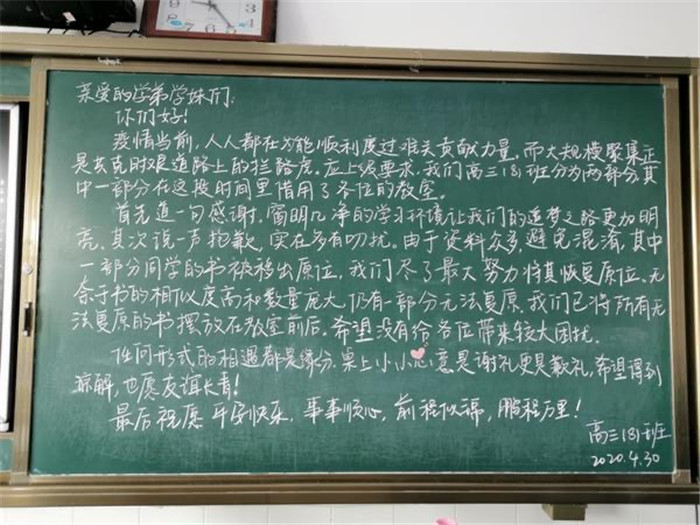 亲爱的学弟学妹们:
你们好!
疫情当前,人人都在为能顺利度过难关贡献力量。而大规模聚集正
是共克时艰道路上的拦路虎。应上级要求,我们高三(3)班分为两部分,其
中一部分在这段时间里借用了各位的教室。
首先道一句感谢,窗明几净的学习环境让我们的追梦之路更加明
亮。其次说一声抱歉,实在多有叨扰。由于资料众多,避免混淆,其中
一部分同学的书被移出原位,我们尽了最大努力将其恢复原位。无
奈于书的相似度高和数量庞大,仍有一部分无法复原。我们已将所有无
法复原的书摆放在教室前后。希望没有给各位带来较大困扰。
任何形式的相遇都是缘分,桌上小小心意是谢礼更是歉礼,希望得到
谅解,也愿友谊长青!
最后祝愿 平安快乐,事事顺心,前程似锦,鹏程万里!
高三(3)班
2020.4.30